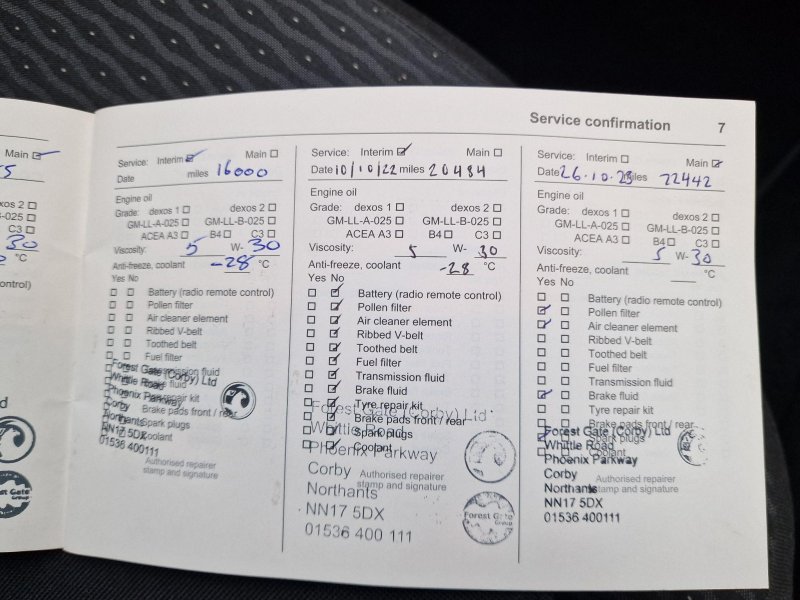 Service confirmation 7
Main
5
2
B-025
C3
30
°C
ontrol)
d
Forest Gate
Group
Service: Interim Main
Date miles 16000
Engine oil
Grade: dexos 1 dexos 2
GM-LL-A-025 GM-LL-B-025
ACEA A3 B4 C3
Viscosity: 5 W- 30
Anti-freeze, coolant -28 °C
Yes No
Battery (radio remote control)
Pollen filter
Air cleaner element
Ribbed V-belt
Toothed belt
Fuel filter
Transmission fluid
Brake fluid
Tyre repair kit
Brake pads front / rear
Spark plugs
Coolant
Forest Gate (Corby) Ltd
Whittle Road
Phoenix Parkway
Corby
Northants
NN17 5DX
01536 400111
Authorised repairer
stamp and signature
Service: Interim Main
Date 10/10/22 miles 20484
Engine oil
Grade: dexos 1 dexos 2
GM-LL-A-025 GM-LL-B-025
ACEA A3 B4 C3
Viscosity: 5 W- 30
Anti-freeze, coolant -28 °C
Yes No
Battery (radio remote control)
Pollen filter
Air cleaner element
Ribbed V-belt
Toothed belt
Fuel filter
Transmission fluid
Brake fluid
Tyre repair kit
Brake pads front / rear
Spark plugs
Coolant
Forest Gate (Corby) Ltd
Whittle Road
Phoenix Parkway
Corby
Northants
NN17 5DX
01536 400 111
Authorised repairer
stamp and signature
Forest Gate
Group
Service: Interim Main
Date 26.10.23 miles 22442
Engine oil
Grade: dexos 1 dexos 2
GM-LL-A-025 GM-LL-B-025
ACEA A3 B4 C3
Viscosity: 5 W- 30
Anti-freeze, coolant °C
Yes No
Battery (radio remote control)
Pollen filter
Air cleaner element
Ribbed V-belt
Toothed belt
Fuel filter
Transmission fluid
Brake fluid
Tyre repair kit
Brake pads front / rear
Spark plugs
Coolant
Forest Gate (Corby) Ltd
Whittle Road
Phoenix Parkway
Corby
Northants
NN17 5DX
01536 400111
Authorised repairer
stamp and signature